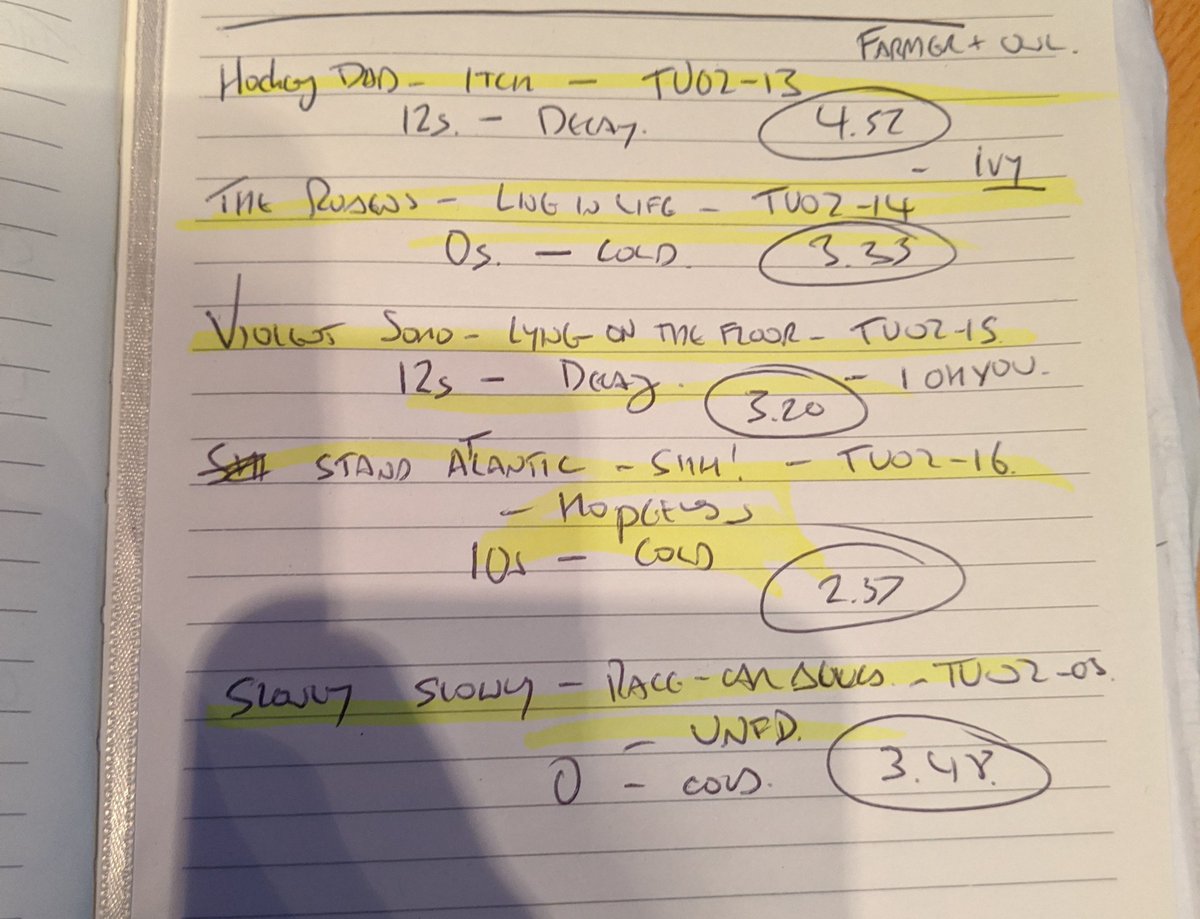 FARMER + OWL.
Hockey DAD - ITCH - TU02-13
12s. - DECAY. 4.52
- IVY
THE RUBENS - LIVE IN LIFE - TU02-14
0s. - COLD. 3.33
VIOLENT SOHO - LYING ON THE FLOOR - TU02-15
12s - DECAY. 3.20 - I OH YOU.
STAND ATLANTIC - SHH! - TU02-16.
- HOPELESS
10s - COLD 2.57
SLOWLY SLOWLY - RACE-CAR BLUES - TU02-05.
- UNFD.
0 - COLD. 3.48.